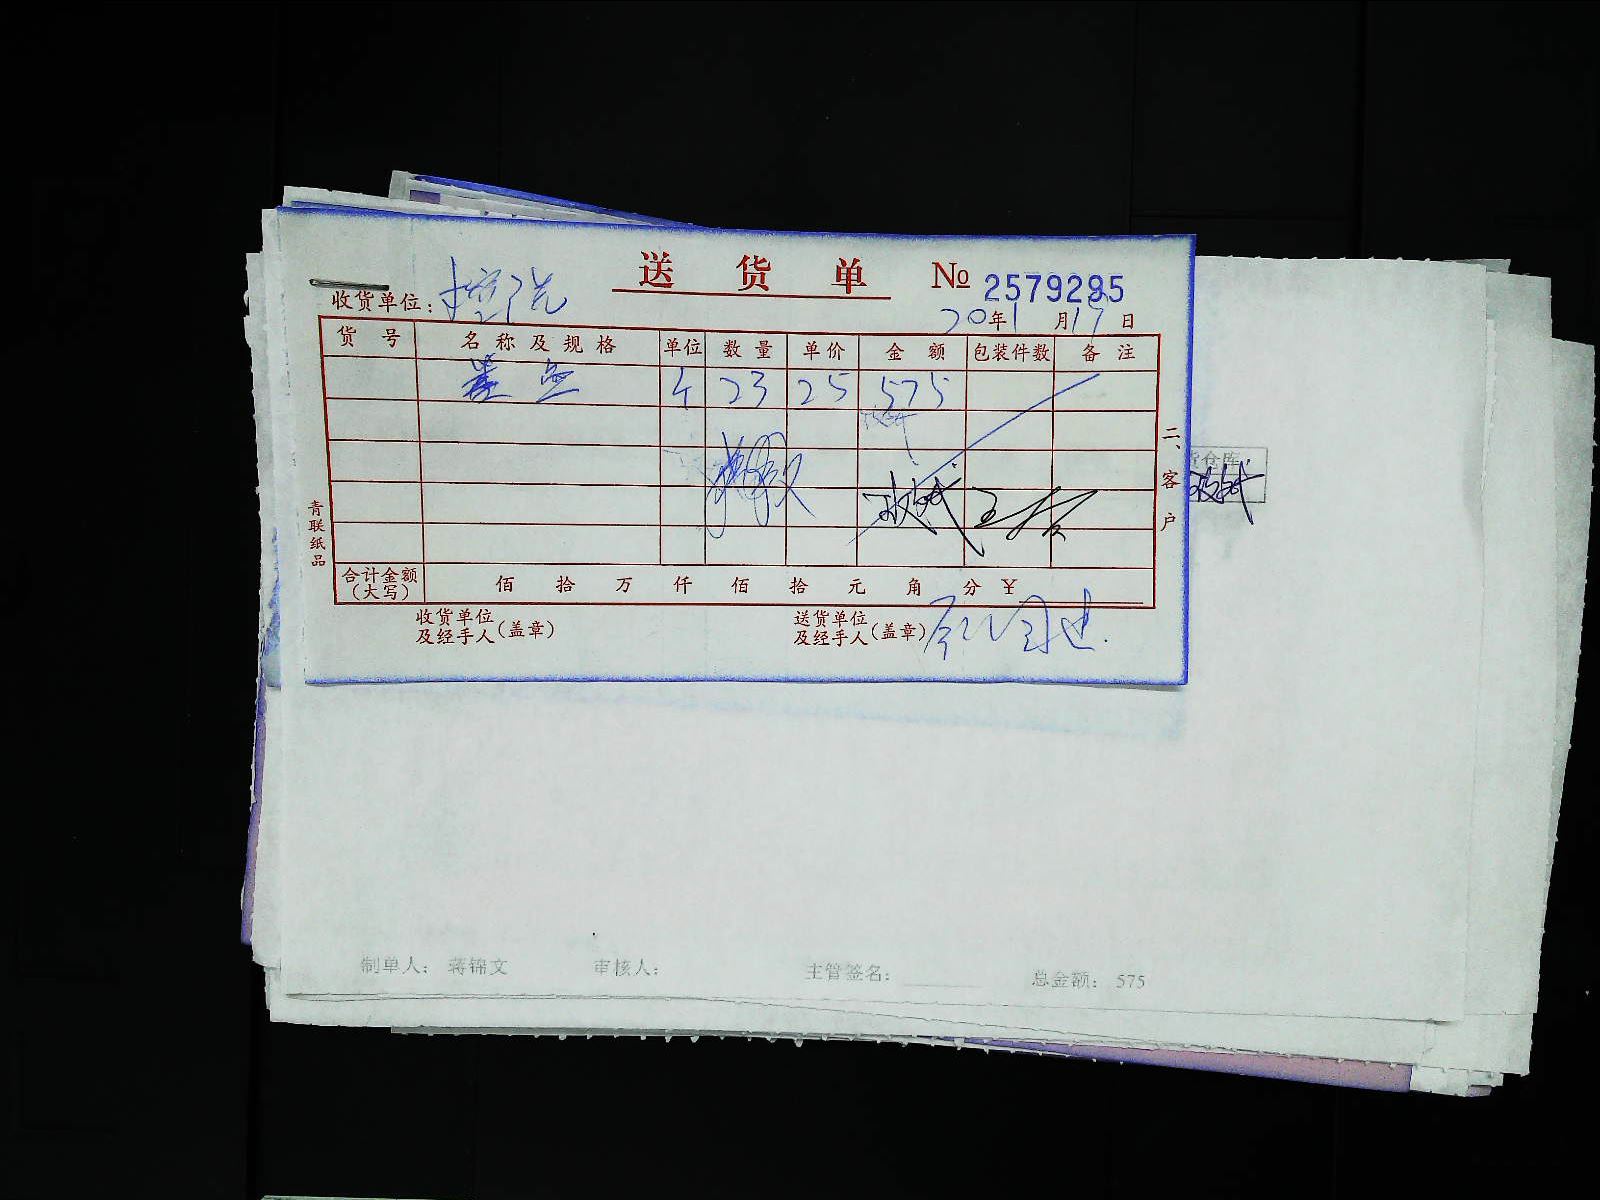 送货单 № 2579285
收货单位:
20年1月17日
货号 名称及规格 单位 数量 单价 金额 包装件数 备注
23 25 575
二、客户
青联纸品
合计金额(大写) 佰 拾 万 仟 佰 拾 元 角 分 ¥
收货单位及经手人(盖章) 送货单位及经手人(盖章)
仓库
制单人: 蒋锦文 审核人: 主管签名: 总金额: 575